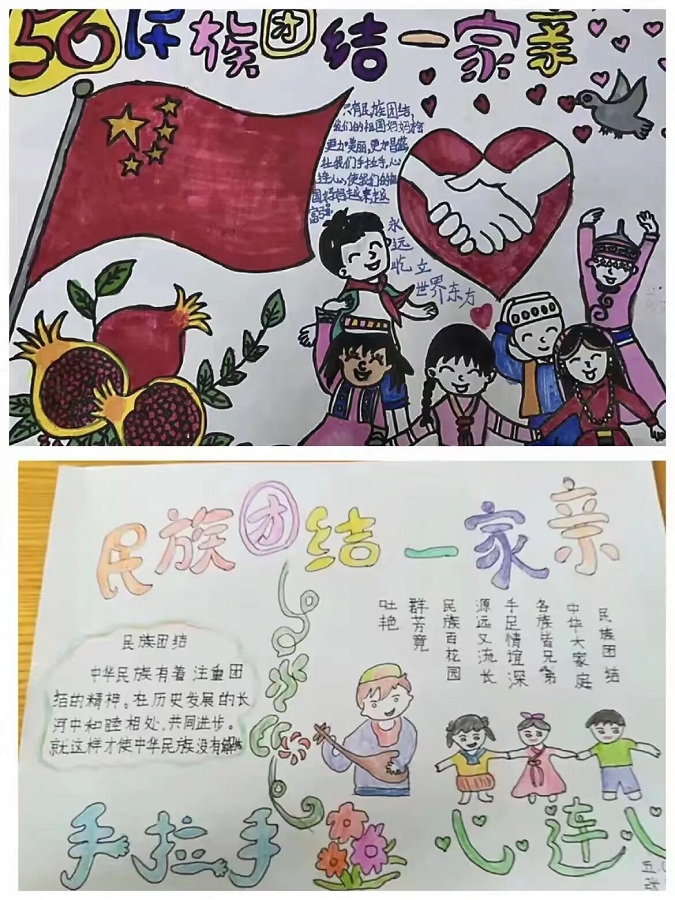 56民族团结一家亲
只有民族团结,
我们的祖国妈妈才会
更加美丽,更加昌盛,
让我们手拉手,心
连心,使我们的祖
国妈妈越来越
富强
永远屹立
世界东方
民族团结一家亲
民族团结
中华民族有着注重团
结的精神。在历史发展的长
河中和睦相处,共同进步。
就这样才使中华民族没有
民族团结
中华大家庭
各族皆兄弟
手足情谊深
源远又流长
民族百花园
群芳竞
吐艳
手拉手
心连心
五
张